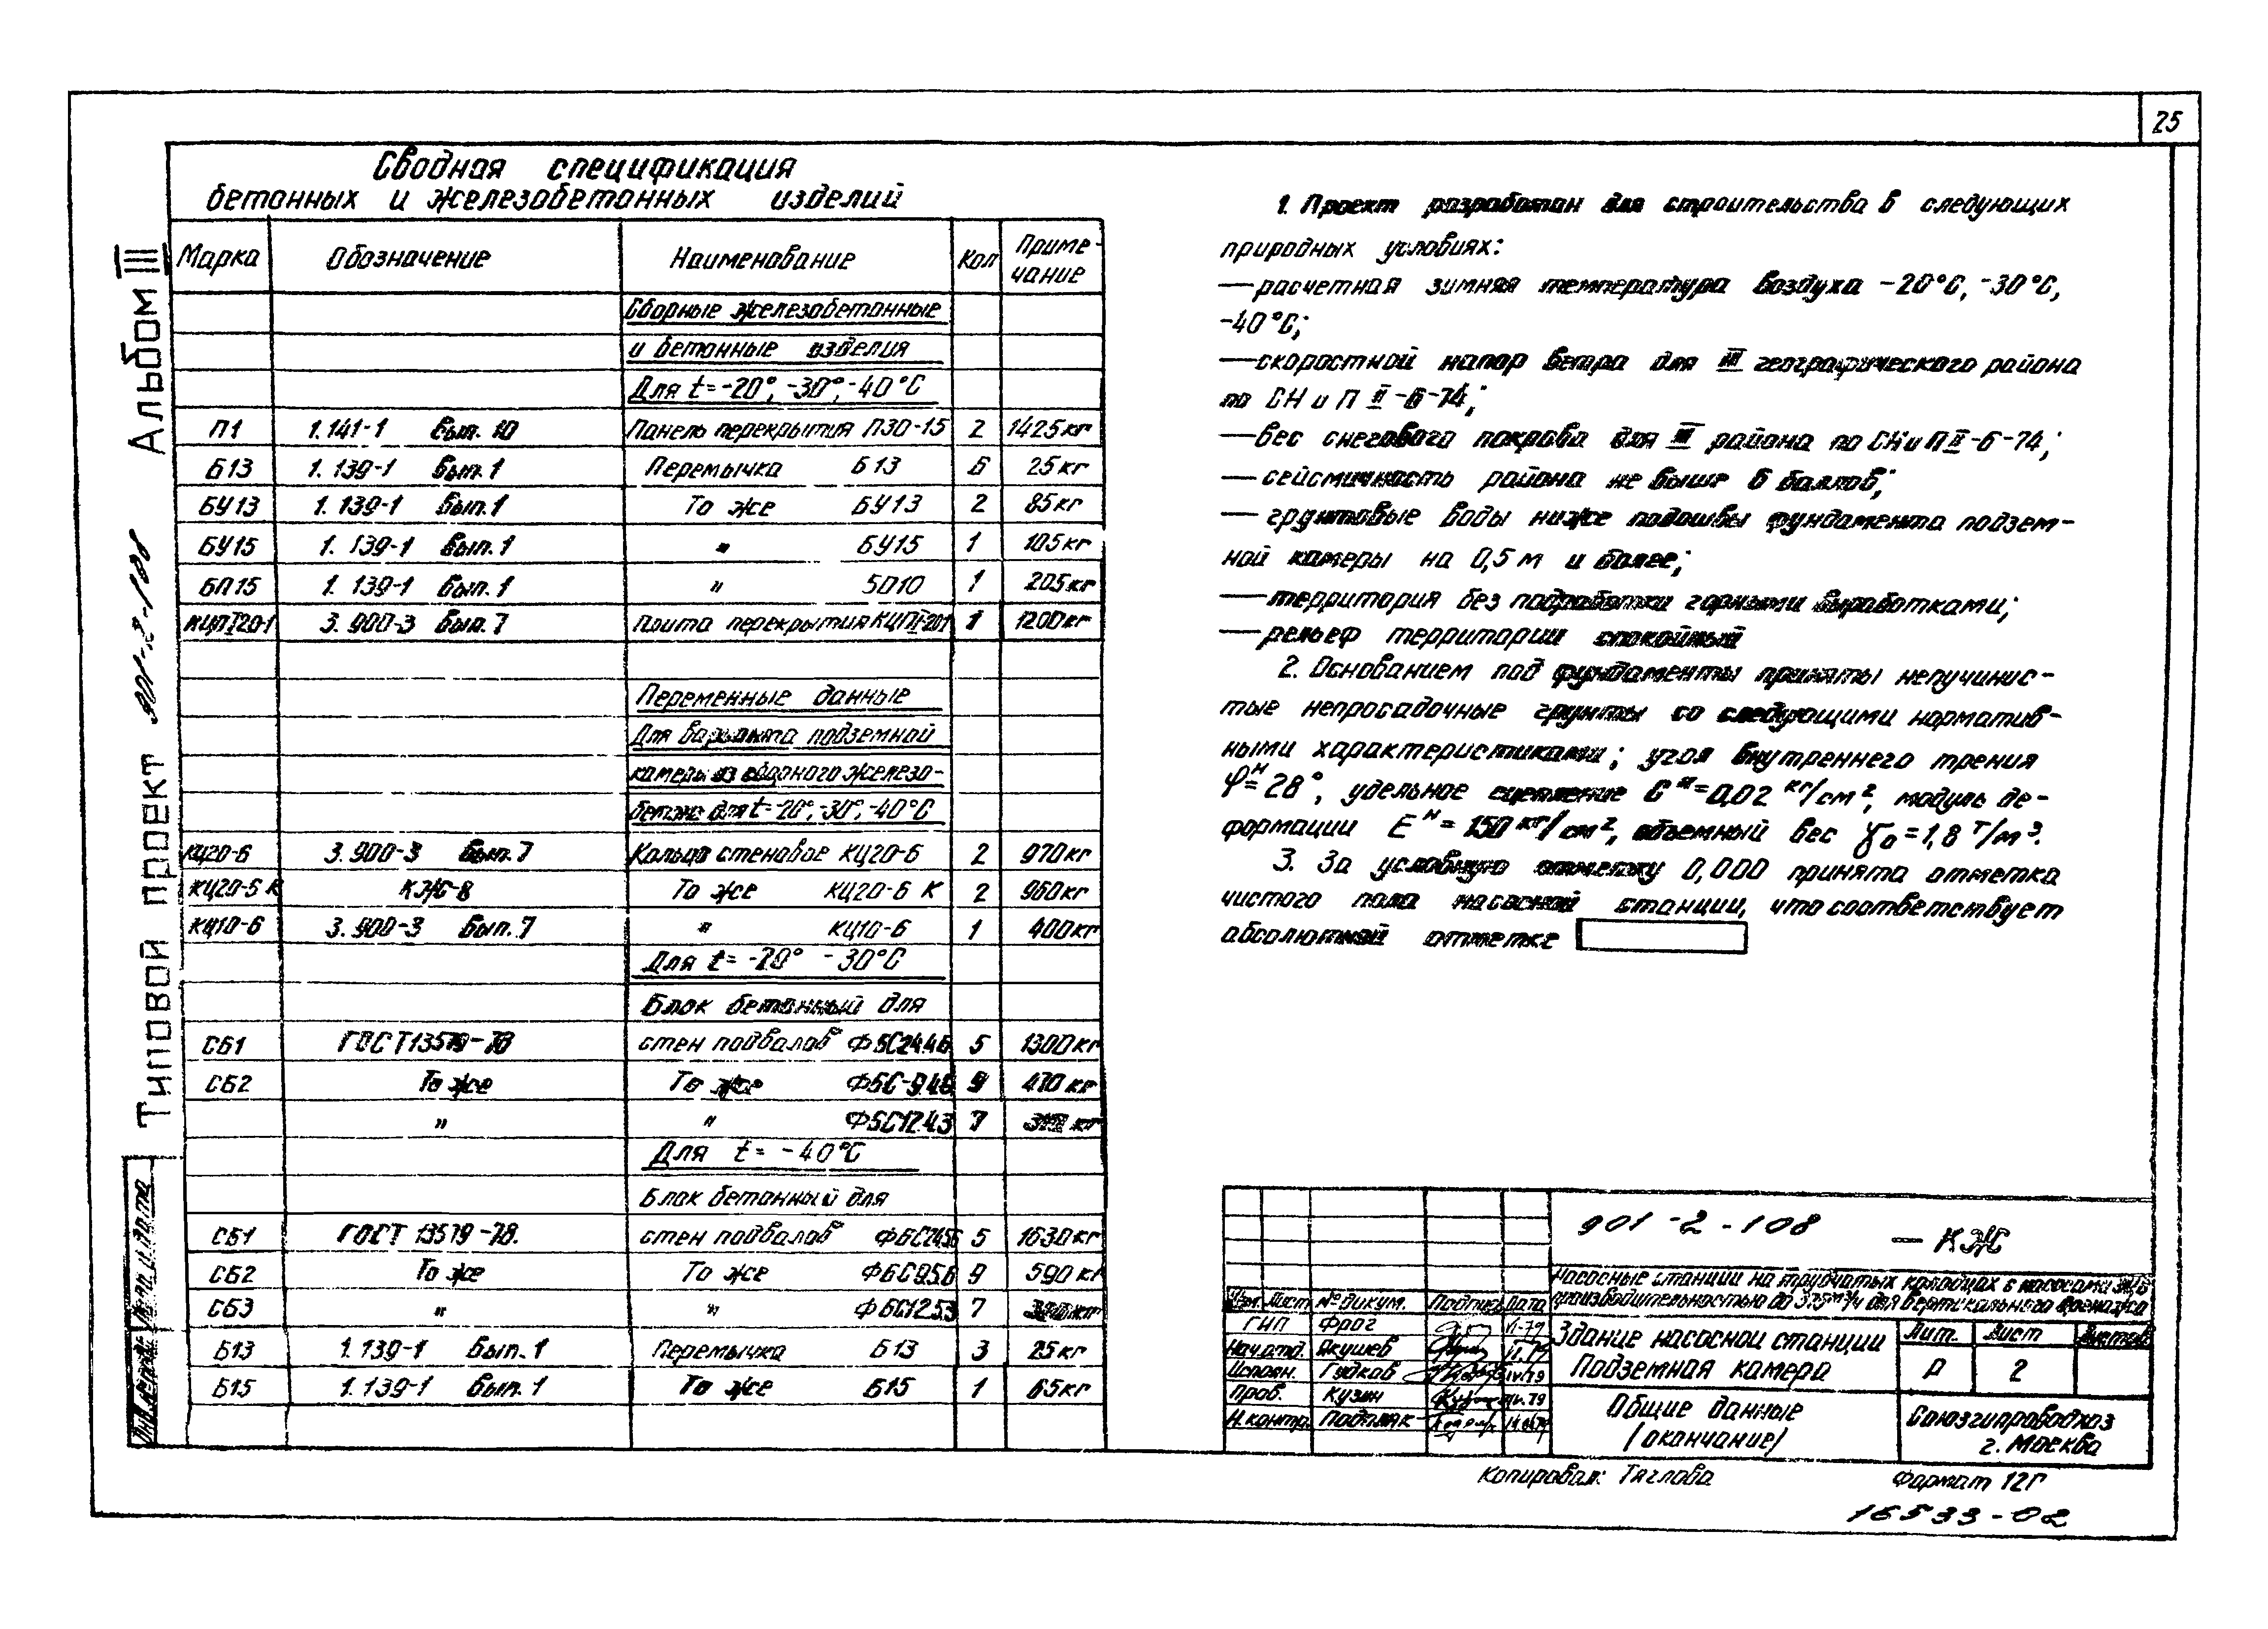 25
Альбом III
Типовой проект 901-2-108
Сводная спецификация
бетонных и железобетонных изделий
Марка Обозначение Наименование Кол Приме-
чание
Сборные железобетонные
и бетонные изделия
Для t=-20°, -30°, -40°С
П1 1.141-1 Вып. 10 Панель перекрытия П30-15 2 1425кг
Б13 1.139-1 Вып.1 Перемычка Б13 6 25кг
БУ13 1.139-1 Вып.1 То же БУ13 2 85кг
БУ15 1.139-1 Вып.1 " БУ15 1 105кг
БП15 1.139-1 Вып.1 " 5010 1 205кг
3.900-3 Вып.7 Плита перекрытия 1 1200кг
Переменные данные
Для варианта подземной
камеры из сборного железо-
бетона для t=-20°, -30°, -40°С
КЦ20-6 3.900-3 Вып.7 Кольцо стеновое КЦ20-6 2 970кг
КЦ20-6 К КЖ-8 То же КЦ20-6 К 2 960кг
КЦ10-6 3.900-3 Вып.7 " КЦ10-6 1 400кг
Для t=-20° -30°С
Блок бетонный для
СБ1 ГОСТ13579-78 стен подвалов ФБС24.4.6 5 1300кг
СБ2 То же То же ФБС-9.4.6 9 470кг
" " ФБС12.4.3 7 кг
Для t= -40°С
Блок бетонный для
СБ1 ГОСТ 13579-78. стен подвалов ФБС24.5.6 5 1630кг
СБ2 То же То же ФБС9.5.6 9 590кг
СБ3 " " ФБС12.5.3 7 кг
Б13 1.139-1 Вып.1 Перемычка Б13 3 25кг
Б15 1.139-1 Вып.1 То же Б15 1 65кг
1. Проект разработан для строительства в следующих
природных условиях:
— расчетная зимняя температура воздуха -20°С, -30°С,
-40°С;
— скоростной напор ветра для III географического района
по СНиП II-6-74;
— вес снегового покрова для III района по СНиП II-6-74;
— сейсмичность района не выше 6 баллов;
— грунтовые воды ниже подошвы фундамента подзем-
ной камеры на 0,5 м и более;
— территория без подработки горными выработками;
— рельеф территории спокойный
2. Основанием под фундаменты приняты непучинис-
тые непросадочные грунты со следующими норматив-
ными характеристиками; угол внутреннего трения
φн=28°, удельное сцепление Сн=0,02 кг/см², модуль де-
формации Ен=150 кг/см², объемный вес γо=1,8 т/м³.
3. За условную отметку 0,000 принята отметка
чистого пола насосной станции, что соответствует
абсолютной отметке
901-2-108 — КЖ
Насосные станции на трубчатых колодцах с насосами
производительностью до м³/ч для вертикального дренажа
Изм. Лист № докум. Подпись Дата
ГИП Фрог VI-79
Нач.отд. Якушев VI.79
Исполн. Гудков VI.79
Пров. Кузин VI.79
Н.контр. Подпляк
Здание насосной станции
Подземная камера
Лит. Лист Листов
Р 2
Общие данные
(окончание)
Союзгипроводхоз
г. Москва
Копировал: Тяглова Формат 12Г
16533-02